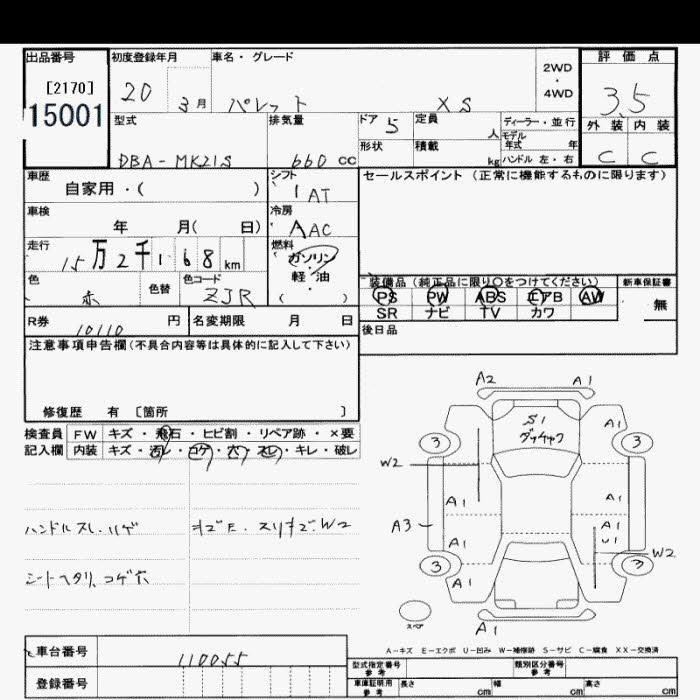 出品番号 初度登録年月 車名・グレード 2WD・4WD 評価点
[2170] 20 3月 パレット XS 3.5
15001 型式 排気量 ドア 5 定員 人 ディーラー・並行 外装 内装
モデル年式 年
DBA-MK21S 660 CC 形状 積載 kg ハンドル 左・右 C C
車歴 シフト セールスポイント (正常に機能するものに限ります)
自家用・( ) 1 AT
車検 冷房
年 月( 日) AAC
走行 燃料
15万2千168km ガソリン
軽・油
色 色替 色コード ( ) 装備品 (純正品に限り〇をつけてください) 新車保証書
赤 ZJR PS PW ABS エアB AW 無
SR ナビ TV カワ
R券 10110 円 名変期限 月 日 後日品
注意事項申告欄(不具合内容等は具体的に記入して下さい)
修復歴 有 〔箇所 〕
検査員 FW キズ・飛石・ヒビ割・リペア跡・×要
記入欄 内装 キズ・汚レ・コゲ・穴・スレ・キレ・破レ
ハンドルスレ、ハゲ
シートヘタリ、コゲ穴
A2 A1
S1
A1
3 3
W2
A1 A1
A3
A1 A1
U1
W2
3 3
A1 A1
スペア
A1
A-キズ E-エクボ U-凹み W-補修跡 S-サビ C-腐食 XX-交換済
車台番号 110055 型式指定番号 参考 類別区分番号 参考
登録番号 車庫証明用 参考 長さ cm 幅 cm 高さ cm